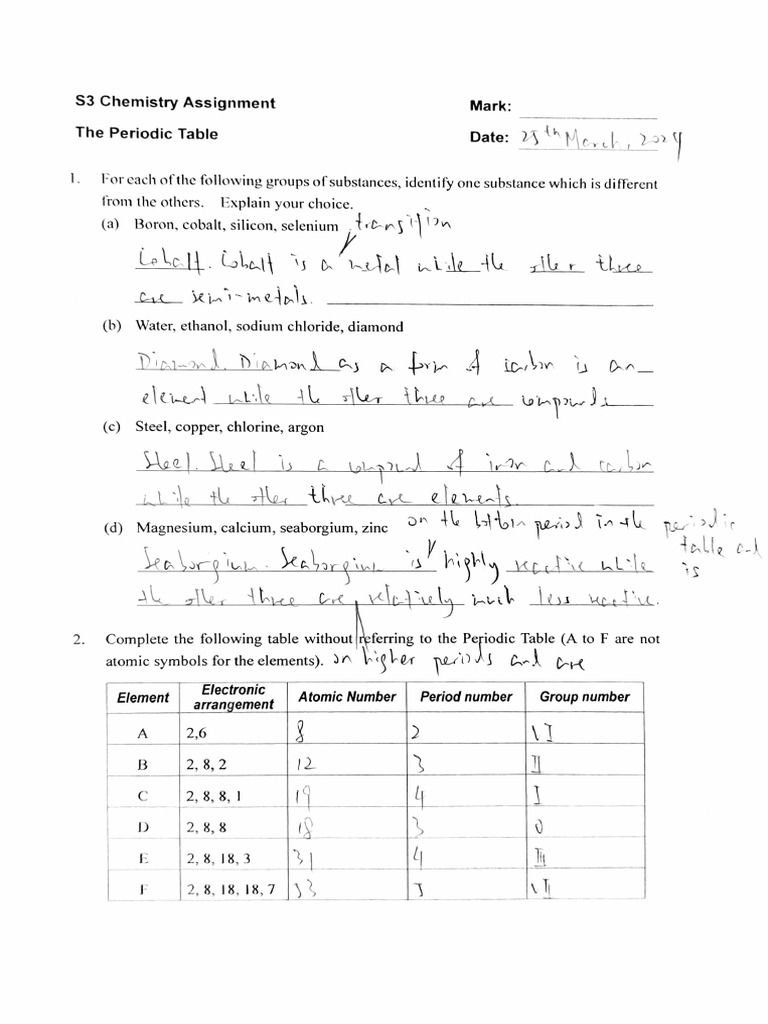 S3 Chemistry Assignment
Mark:
The Periodic Table
Date: 25th March, 2024
1. For each of the following groups of substances, identify one substance which is different
from the others. Explain your choice.
(a) Boron, cobalt, silicon, selenium transition
Cobalt. Cobalt is a metal while the other three
are semi-metals.
(b) Water, ethanol, sodium chloride, diamond
Diamond. Diamond as a form of carbon is an
element while the other three are compounds
(c) Steel, copper, chlorine, argon
Steel. Steel is a compound of iron and carbon
while the other three are elements.
(d) Magnesium, calcium, seaborgium, zinc on the bottom period in the periodic
table and
Seaborgium. Seaborgium is highly reactive while is
the other three are relatively much less reactive.
2. Complete the following table without referring to the Periodic Table (A to F are not
atomic symbols for the elements). on higher periods and are
Element Electronic arrangement Atomic Number Period number Group number
A 2,6 8 2 VI
B 2, 8, 2 12 3 II
C 2, 8, 8, 1 19 4 I
D 2, 8, 8 18 3 0
E 2, 8, 18, 3 31 4 III
F 2, 8, 18, 18, 7 53 5 VII